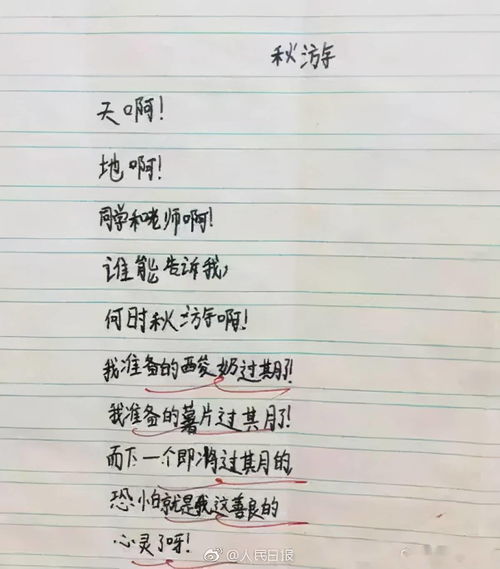 秋游
天啊!
地啊!
同学和老师啊!
谁能告诉我,
何时秋游啊!
我准备的酸奶过期了!
我准备的薯片过期了!
而下一个即将过期的
恐怕就是我这善良的
心灵了呀!
@人民日报